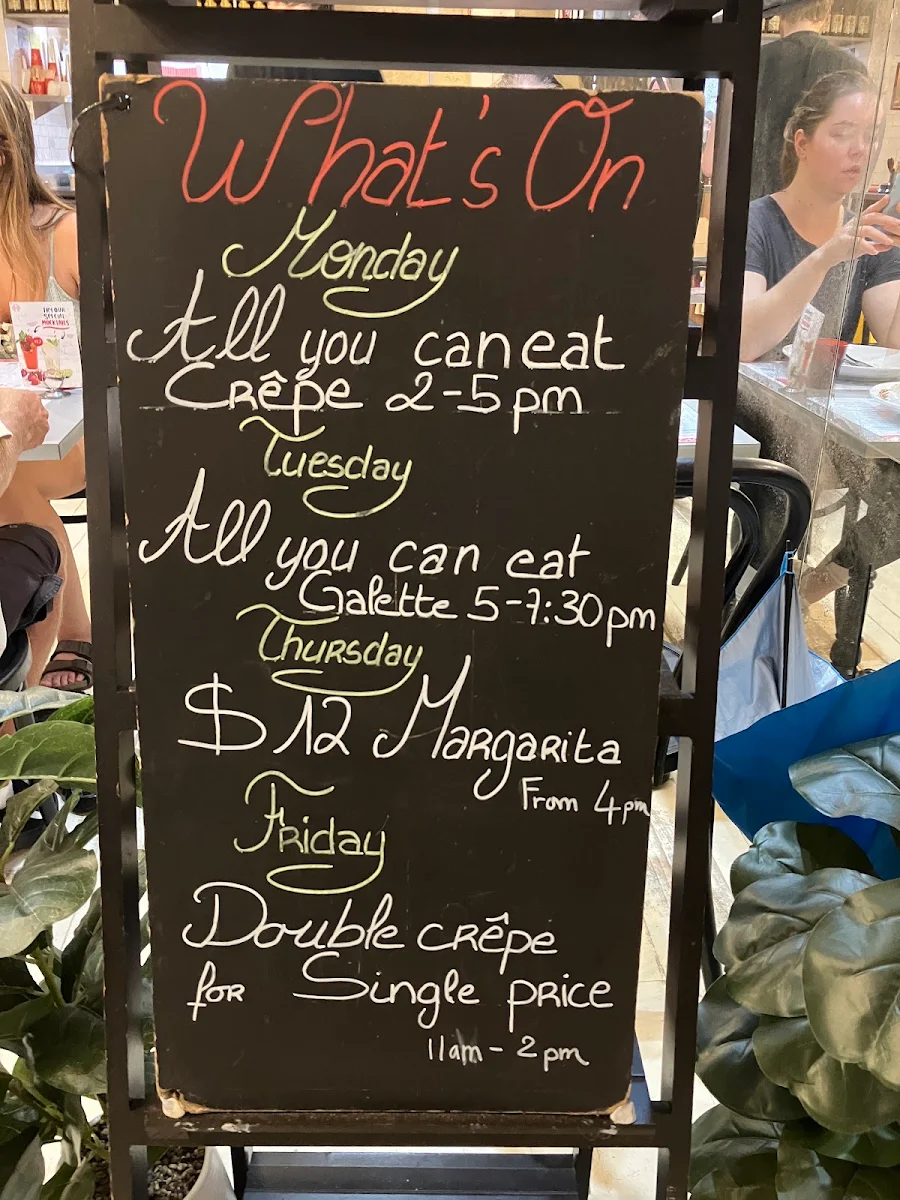 What's On
Monday
All you can eat
Crêpe 2-5pm
Tuesday
All you can eat
Galette 5-7:30pm
Thursday
$12 Margarita
From 4pm
Friday
Double crêpe
for Single price
11am - 2pm
TRY OUR
SPECIAL
MOCKTAILS